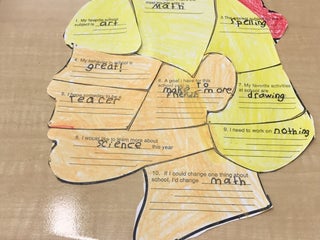 math
1. My favorite school
subject is art
spelling
4. My behavior in school is
great!
5. I hope someday to be a
teacer
6. A goal I have for this
make to more
friends
7. My favorite activities
at school are
drawing
8. I would like to learn more about
science this year
9. I need to work on nothing
10. If I could change one thing about
school, I'd change math